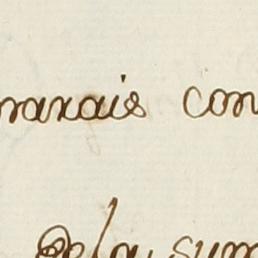 marais con
De la sum